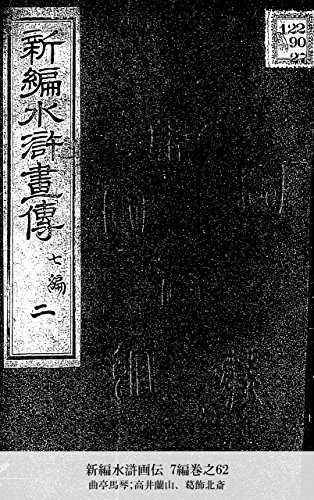 新編水滸畫傳
七編
二
122
90
27
新編水滸画伝 7編巻之62
曲亭馬琴;高井蘭山、葛飾北斎